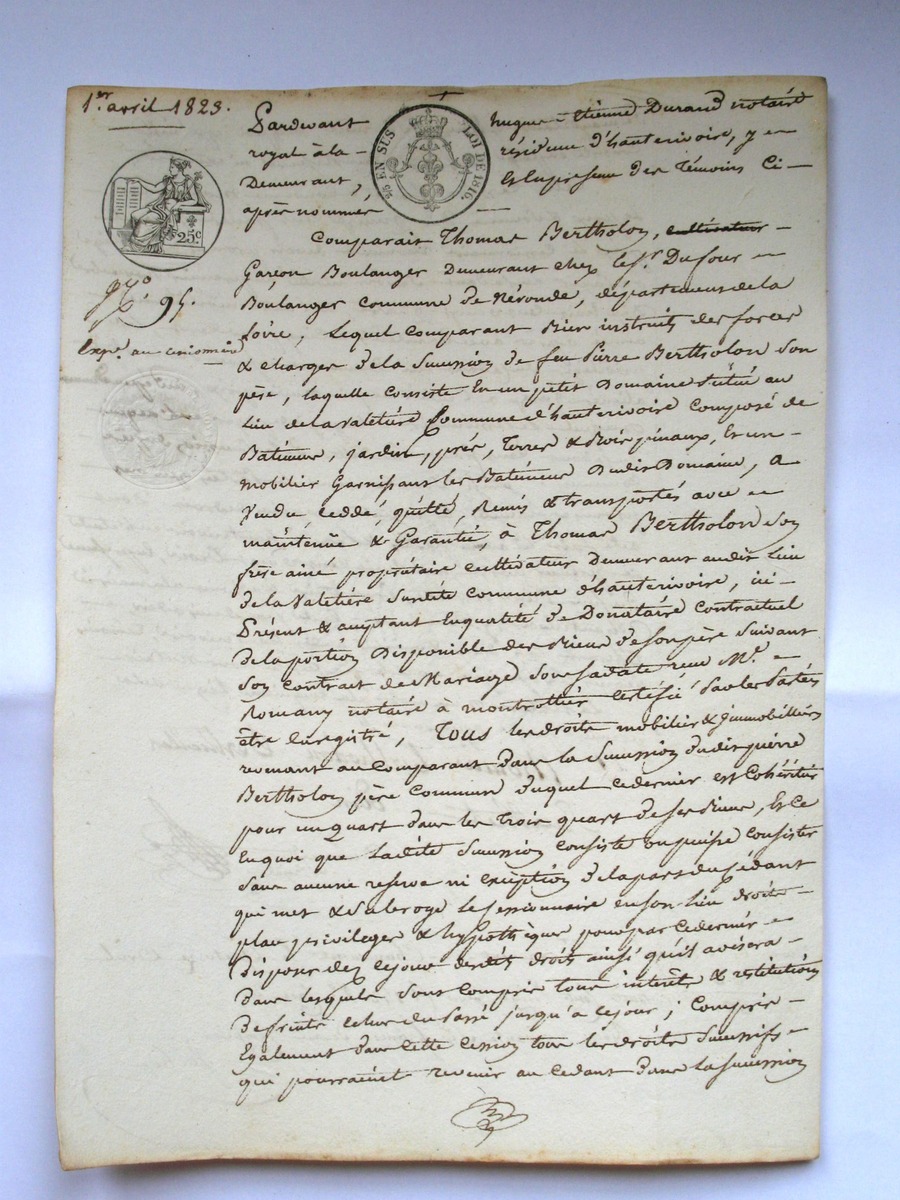 1.er avril 1823.
Pardevant hugues-Etienne Durand notaire
royal à la résidence d'hauterivoire, y
Demeurant, Et en presence des Témoins Ci-
après nommés
25 EN SUS LOI DE 1816.
25.c
N.o 95.
Exp.e au cessionnaire
Comparait Thomas Bertholon, cultivateur
Garcon Boulanger Demeurant chez le S.r Dufour
Boulanger Commune de Néronde, département de la
Loire, Lequel Comparant Bien instruit des forces
& charges de la Succession de feu Pierre Bertholon Son
père, laquelle consiste En un petit Domaine Situé au
lieu de la Valetière Commune d'hauterivoire Composé de
Batiments, jardin, prés, Terres & Bois pinaux, Et un
mobilier Garnissant les Batiments Dudit Domaine, a
Vendu Ceddé, quitté, Remis & transportés avec
maintenüe & Garantie, à Thomas Bertholon Son
frère ainé propriétaire cultivateur Demeurant audit Lieu
de la Valetière Susdite commune d'hauterivoire, ici
Présent & acceptant En qualité de Donataire Contractuel
de la portion Disponible des Biens de Son père Suivant
Son Contrat de Mariage Sous Sa date recu M.e
Romany notaire à montrottier Certifié par les Parties
être Enregistré, Tous les droits mobilier & Immobiliers
revenant au Comparant dans la Succession dudit pierre
Bertholon père Commun duquel ce dernier est Cohéritier
pour un Quart dans les Trois quart de Ses Biens, Et Ce
En quoi que Ladite Succession Consiste ou puisse Consister
Sans aucune reserve ni exception de la part du Cédant
qui met & Subroge le Cessionnaire en Son Lieu droits
place privileges & hypothèques pour par Ce dernier
Disposer dez Ce jour desdits droits ainsi qu'il avisera
Dans lesquels Sont Compris tous intérêts & restitutions
de fruits Echus du Passé jusqu'à Ce jour ; Compris
Egalement dans cette Cession tous les droits Successifs
qui pourraient revenir au Cédant dans La Succession